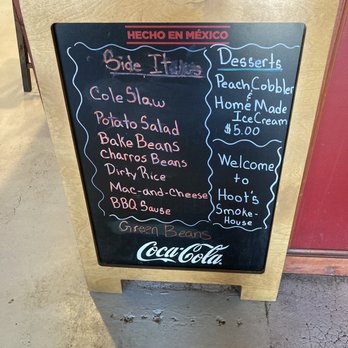 HECHO EN MÉXICO
Side Items
Cole Slaw
Potato Salad
Bake Beans
Charros Beans
Dirty Rice
Mac-and-Cheese
BBQ Sause
Green Beans
Desserts
Peach Cobbler
&
Home Made
Ice Cream
$5.00
Welcome
to
Hoot's
Smoke-
House
Coca-Cola